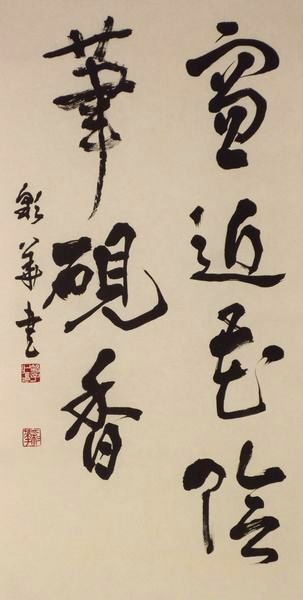 窗近花陰
筆硯香
彩華書